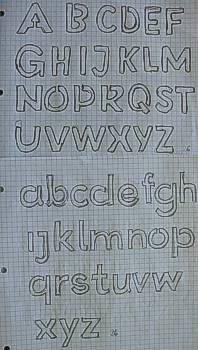 A B C D E F
G H I J K L M
N O P R Q S T
U V W X Y Z
a b c d e f g h
i j k l m n o p
q r s t u v w
x y z 26